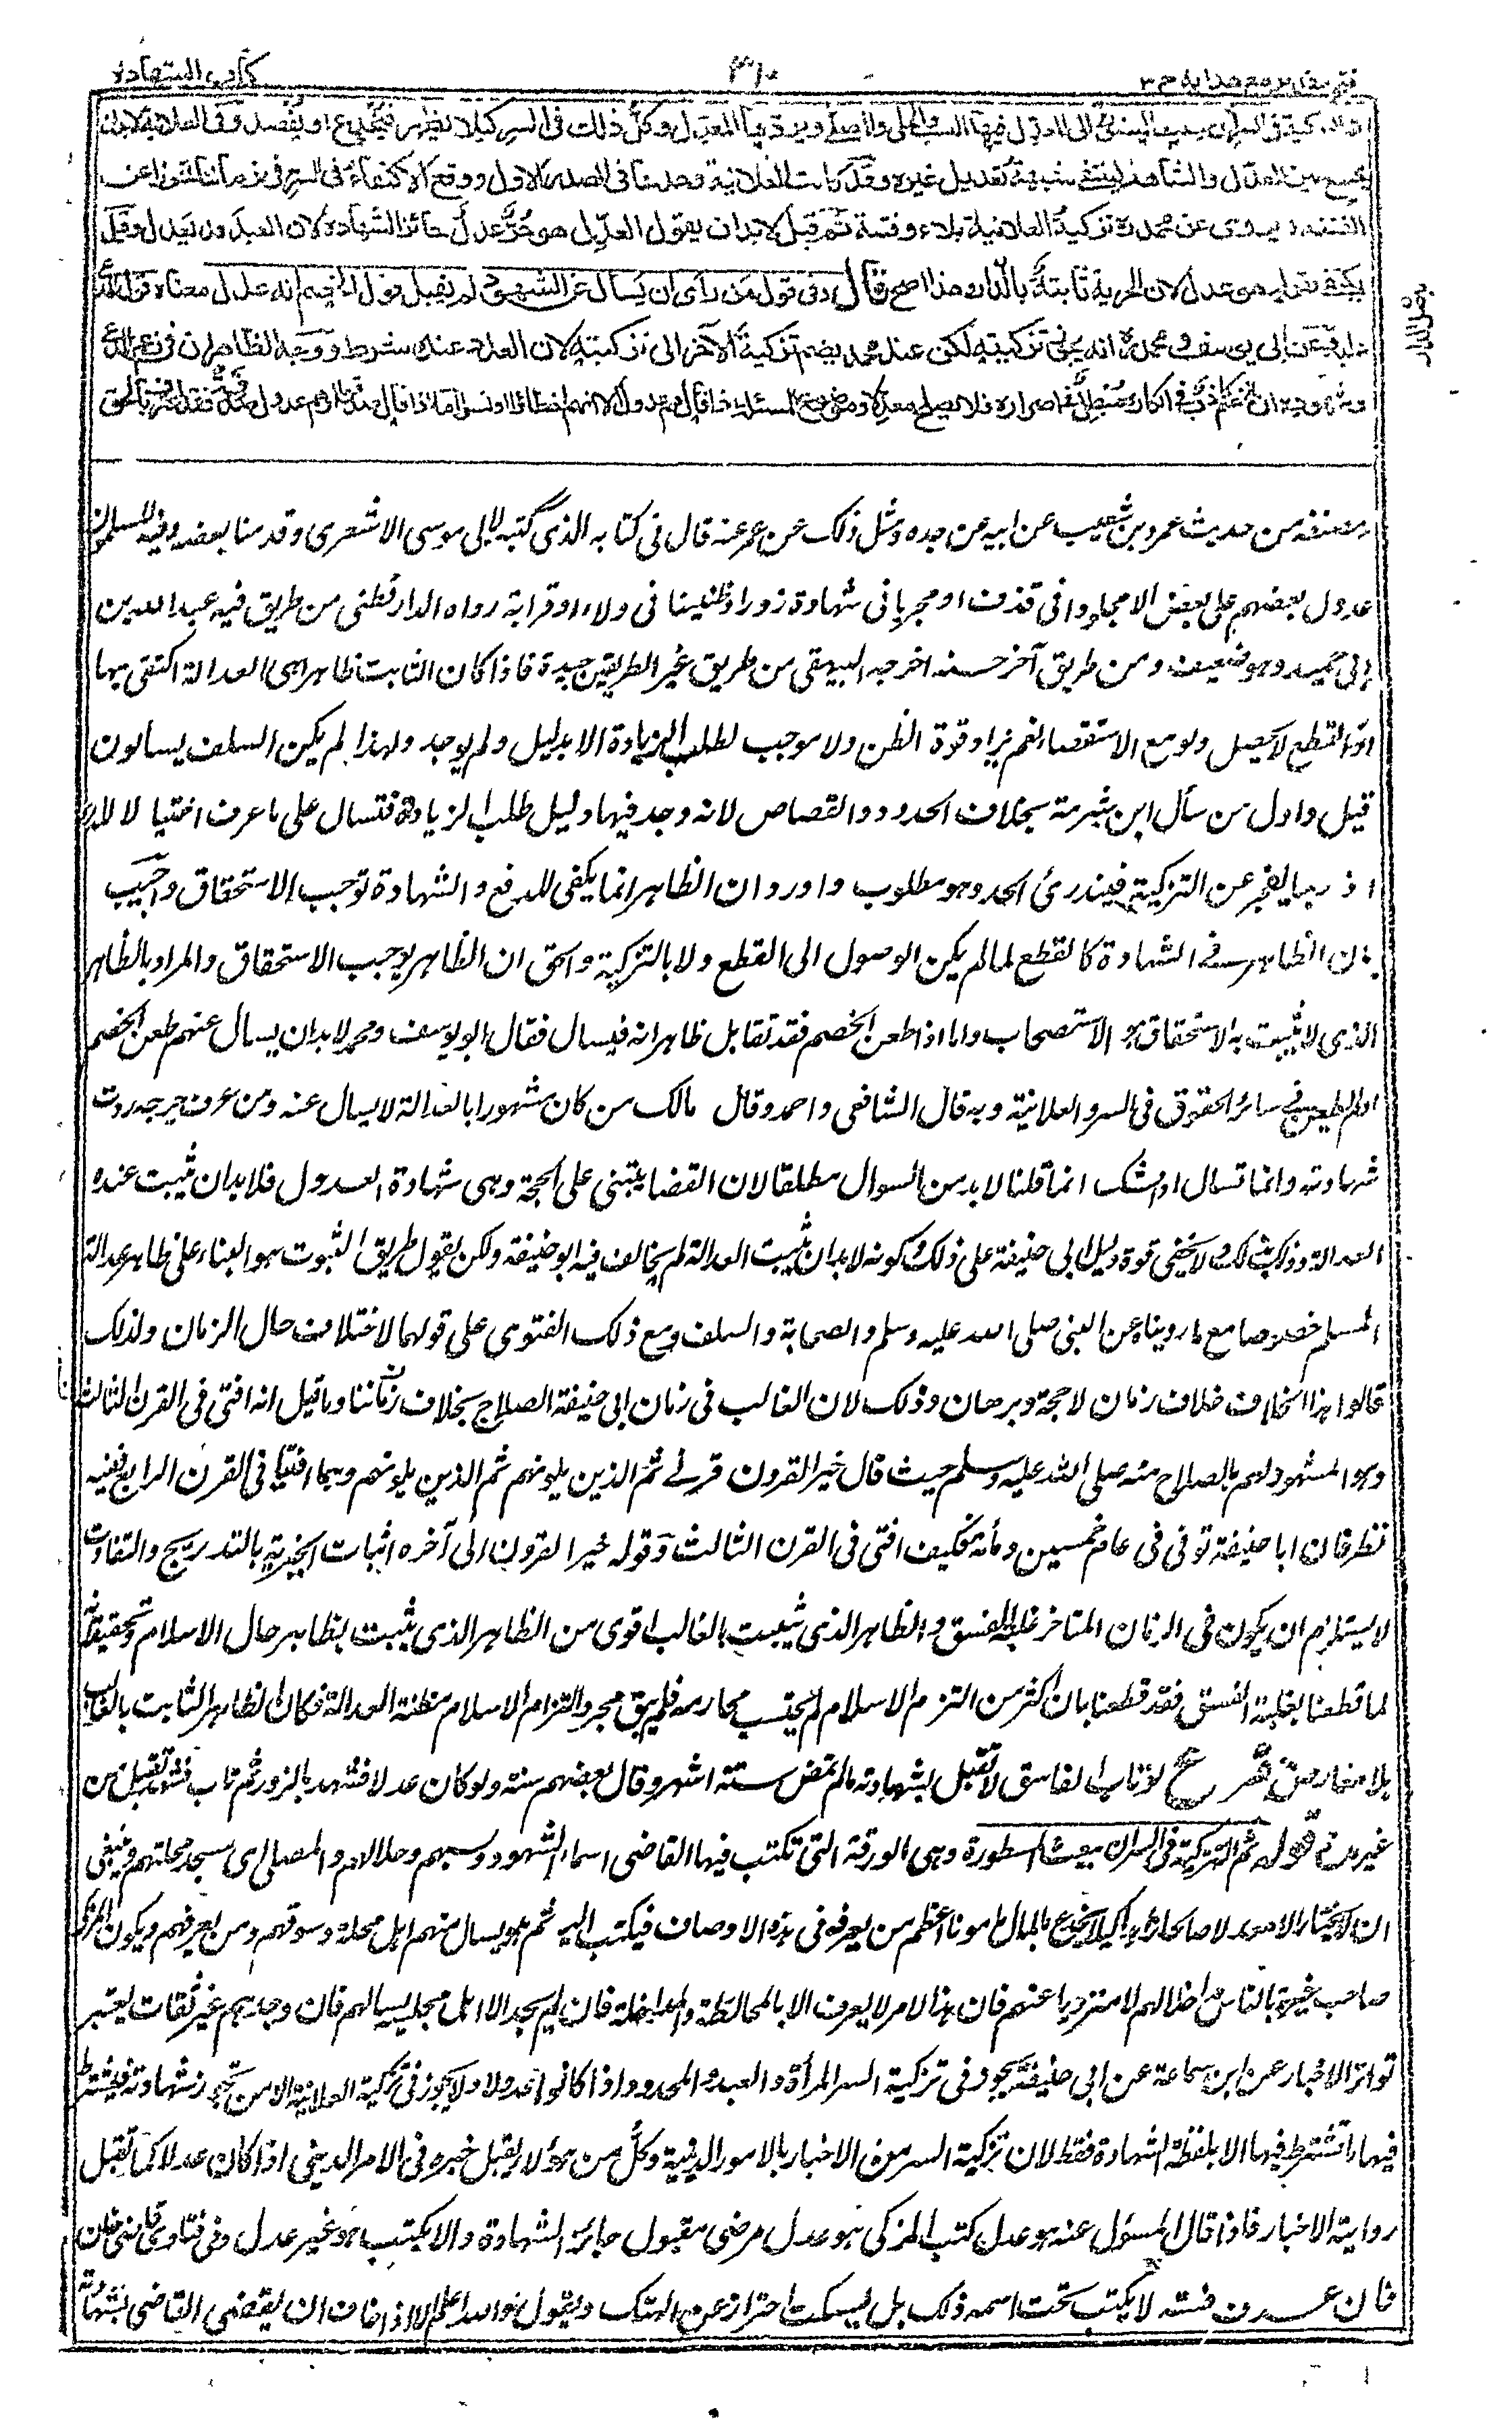 فتح القدير مع هداية ج ٣
٣١٠
كتاب الشهادة
التزكية في السر ان يبعث المستورة الى المعدل فيها النسب والحلى والمصلى ويردها المعدل وكل ذلك في السر كيلا يظهر فيخدع او يقصد وفي العلانية لابد ان
يجمع بين المعدل والشاهد لينتفى شبهة تعديل غيره وقد كانت العلانية وحدها في الصدر الاول ووقع الاكتفاء في السر في زماننا تحرزا عن
الفتنة ويروى عن محمد تزكية العلانية بلاء وفتنة ثم قيل لابد ان يقول المعدل هو حر عدل جائز الشهادة لان العبد قد يعدل وقيل
يكتفى بقوله هو عدل لان الحرية ثابتة بالدار وهذا اصح قال وفي قول من رأى ان يسأل عن الشهود لم يقبل قول الخصم انه عدل معناه قول المدعى
عليه وعن ابي يوسف ومحمد انه يجوز تزكيته لكن عند محمد يضم تزكية الآخر الى تزكيته لان العدد عنده شرط ووجه الظاهر ان في زعم المدعى
وشهوده ان الخصم كاذب في انكاره مبطل في اصراره فلا يصلح معدلا وموضوع المسئلة اذا قال هم عدول الا انهم اخطأوا او نسوا اما اذا قال صدقوا او هم عدول صدقة فقد اعترف بالحق
مصنفه من حديث عمرو بن شعيب عن ابيه عن جده ومثل ذلك عن عمر عنه قال في كتابه الذي كتبه لابي موسى الاشعرى وقدمنا بعضه وفيه المسلمون
عدول بعضهم على بعض الا مجلودا في قذف او مجربا في شهادة زور او ظنينا في ولاء او قرابة رواه الدارقطني من طريق فيه عبدالله بن
ابي حميد وهو ضعيف ومن طريق آخر حسنه اخرجه البيهقي من طريق غير الطريقين جيدة فاذا كان الثابت ظاهرا هي العدالة اكتفى بها
اذ القطع لا يحصل ولو مع الاستقصاء نعم يزاد قوة الظن ولا موجب لطلب الزيادة الا بدليل ولم يوجد ولهذا لم يكن السلف يسألون
قيل واول من سأل ابن شبرمة بخلاف الحدود والقصاص لانه وجد فيها دليل طلب الزيادة فتسال على ما عرف احتيالا للدرء
اذ ربما يعجز عن التزكية فيندرئ الحد وهو مطلوب واورد ان الظاهر انما يكفى للدفع والشهادة توجب الاستحقاق واجيب
بان الظاهر في الشهادة كالقطع لما لم يكن الوصول الى القطع ولا بالتزكية والحق ان الظاهر يوجب الاستحقاق والمراد بالظاهر
الذي لا يثبت به الاستحقاق هو الاستصحاب واما اذا طعن الخصم فقد تقابل ظاهران فيسال فقال ابو يوسف ومحمد لابد ان يسال عنهم طعن الخصم
او لم يطعن في سائر الحقوق في السر والعلانية وبه قال الشافعى واحمد وقال مالك من كان مشهورا بالعدالة لا يسال عنه ومن عرف جرحه ردت
شهادته وانما تسال اذا شك انما قلنا لابد من السوال مطلقا لان القضا يبتنى على الحجة وهى شهادة العدول فلا بد ان يثبت عنده
العدالة وذلك بذلك ولا يخفى قوة دليل ابي حنيفة على ذلك وكونه لابد ان يثبت العدالة لم يخالف فيه ابو حنيفة ولكن يقول طريق الثبوت هو البناء على ظاهر عدالة
المسلم خصوصا مع ما رويناه عن النبي صلى الله عليه وسلم والصحابة والسلف ومع ذلك الفتوى على قولهما لاختلاف حال الزمان ولذلك
قالوا هذا الخلاف خلاف زمان لا حجة وبرهان وذلك لان الغالب في زمان ابي حنيفة الصلاح بخلاف زماننا وما قيل انه افتى في القرن الثالث
وهو المشهود لهم بالصلاح منه صلى الله عليه وسلم حيث قال خير القرون قرنى ثم الذين يلونهم ثم الذين يلونهم وهما افتيا في القرن الرابع ففيه
نظر فان ابا حنيفة توفى في عام خمسين ومائة فكيف افتى في القرن الثالث وقوله خير القرون الى آخره اثبات الخيرية بالتدريج والتفاوت
لا يستلزم ان يكون في الزمان المتاخر غلبة الفسق والظاهر الذي يثبت بالغالب اقوى من الظاهر الذي يثبت بظاهر حال الاسلام وتحقيقه
لما قطعنا بغلبة الفسق فقد قطعنا بان اكثر من التزم الاسلام لم يجتنب محارمه فلم يبق مجرد التزام الاسلام مظنة العدالة فكان الظاهر الثابت بالغالب
بلا معارض فرع لو تاب الفاسق لا تقبل شهادته مالم تمض ستة اشهر وقال بعضهم سنة ولو كان عدلا فشهد بالزور ثم تاب فشهد تقبل من
غير مدة قوله ثم التزكية في السر ان يبعث المسطورة وهى الورقة التى تكتب فيها القاضى اسماء الشهود ونسبهم وحلاهم والمصلى اى مسجد محلتهم وينبغى
ان لا يختار الا معدلا صالحا زاهدا كيلا يخدع بالمال مامونا اعظم من يعرفه في هذه الاوصاف فيكتب اليه ثم هو يسال منهم اهل محلة وسوقهم ومن يعرفهم ويكون المزكى
صاحب خبرة بالناس مداخلا لهم لا منزويا عنهم فان هذا الامر لا يعرف الا بالمخالطة والمداخلة فان لم يجد الا اهل مجلسه يسالهم فان وجدهم غير ثقات يعتبر
تواتر الاخبار عن ابن سماعة عن ابي حنيفة يجوز في تزكية السر المرأة والعبد والمحدود اذا كانوا عدولا ولا يجوز في تزكية العلانية الا من تجوز شهادته فيشترط
فيها ما تشترط فيها الا بلفظة الشهادة فقط لان تزكية السر من الاخبار بالامور الدينية وكل من هؤلاء يقبل خبره في الامر الدينى اذا كان عدلا كما تقبل
رواية الاخبار فاذا قال المسئول عنه هو عدل كتب المزكى هو عدل مرضى مقبول جائز الشهادة والا يكتب هو غير عدل وفى فتاوى قاضى خان
فان عرف فسقه لا يكتب تحت اسمه ذلك بل يسكت احترازا عن الهتك ويقول هو الله اعلم الا اذا خاف ان يقضى القاضى بشهادته